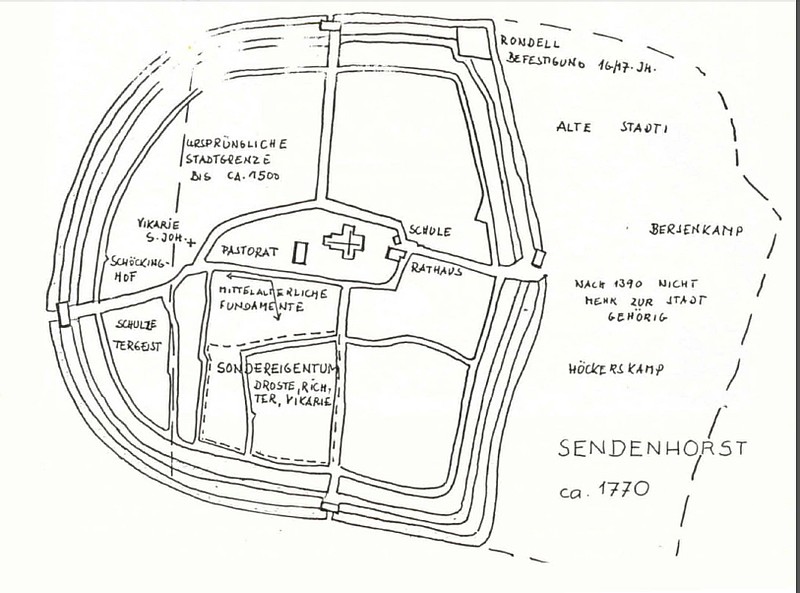 RONDELL
BEFESTIGUNG 16/17. JH.
ALTE STADT!
URSPRÜNGLICHE
STADTGRENZE
BIS CA. 1500
VIKARIE
S. JOH.
SCHÖCKING-
HOF
PASTORAT
SCHULE
RATHAUS
BERSENKAMP
MITTELALTERLICHE
FUNDAMENTE
NACH 1390 NICHT
MEHR ZUR STADT
GEHÖRIG
SCHULZE
TERGEIST
SONDEREIGENTUM
DROSTE, RICH,
TER, VIKARIE
HÖCKERSKAMP
SENDENHORST
ca. 1770